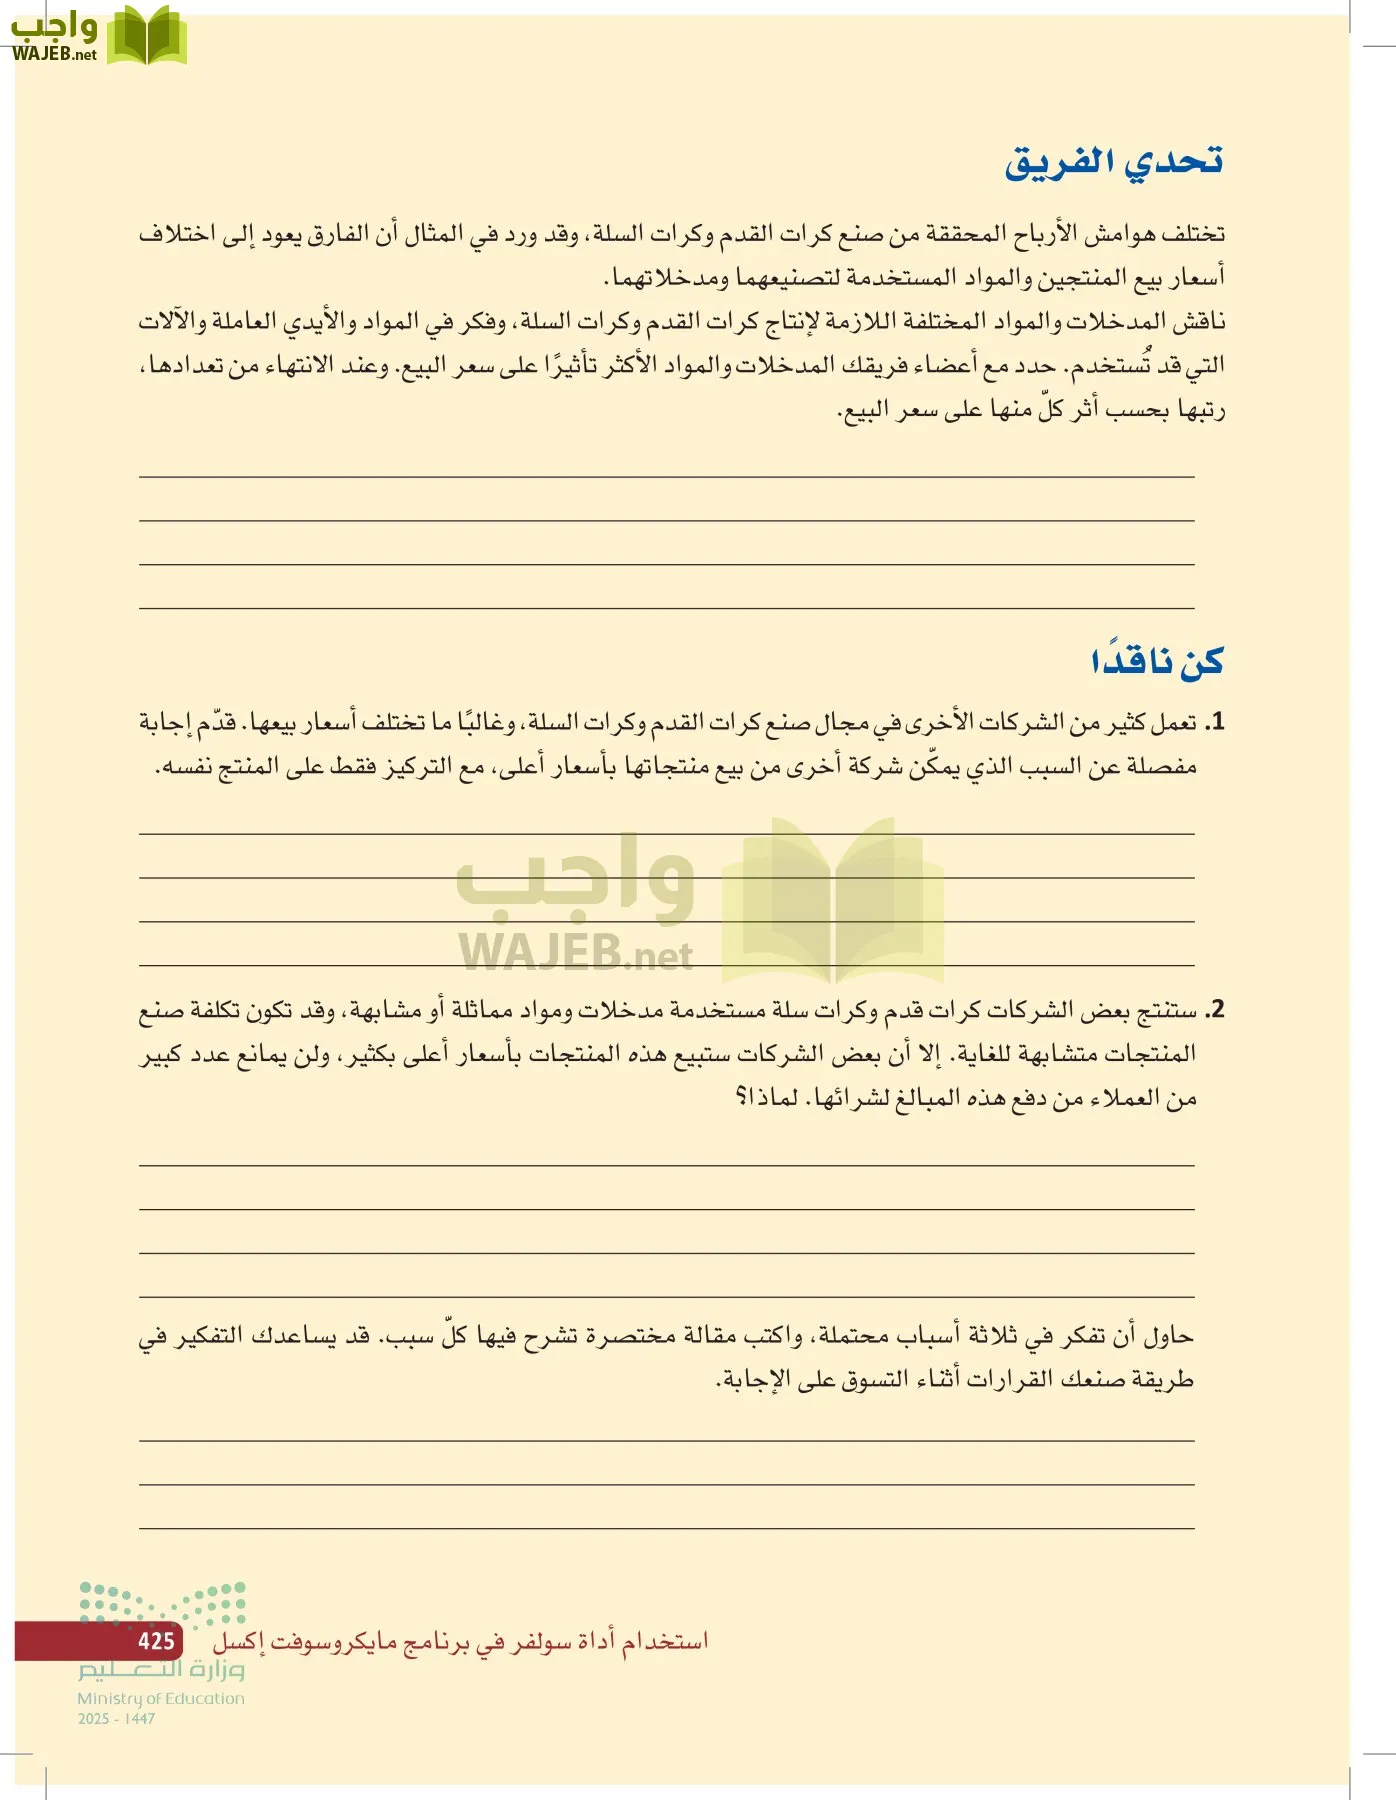 واجب
WAJEB.net
تحدي الفريق
تختلف هوامش الأرباح المحققة من صنع كرات القدم وكرات السلة، وقد ورد في المثال أن الفارق يعود إلى اختلاف
أسعار بيع المنتجين والمواد المستخدمة لتصنيعهما ومدخلاتهما.
ناقش المدخلات والمواد المختلفة اللازمة لإنتاج كرات القدم وكرات السلة، وفكر في المواد والأيدي العاملة والآلات
التي قد تُستخدم. حدد مع أعضاء فريقك المدخلات والمواد الأكثر تأثيرًا على سعر البيع. وعند الانتهاء من تعدادها،
رتبها بحسب أثر كلّ منها على سعر البيع.
كن ناقدًا
1. تعمل كثير من الشركات الأخرى في مجال صنع كرات القدم وكرات السلة، وغالبًا ما تختلف أسعار بيعها. قدّم إجابة
مفصلة عن السبب الذي يمكّن شركة أخرى من بيع منتجاتها بأسعار أعلى، مع التركيز فقط على المنتج نفسه.
واجب
WAJEB.net
2. ستنتج بعض الشركات كرات قدم وكرات سلة مستخدمة مدخلات ومواد مماثلة أو مشابهة، وقد تكون تكلفة صنع
المنتجات متشابهة للغاية. إلا أن بعض الشركات ستبيع هذه المنتجات بأسعار أعلى بكثير، ولن يمانع عدد كبير
من العملاء من دفع هذه المبالغ لشرائها. لماذا؟
حاول أن تفكر في ثلاثة أسباب محتملة، واكتب مقالة مختصرة تشرح فيها كلّ سبب. قد يساعدك التفكير في
طريقة صنعك القرارات أثناء التسوق على الإجابة.
استخدام أداة سولفر في برنامج مايكروسوفت إكسل 425
وزارة التعليم
Ministry of Education
2025 - 1447